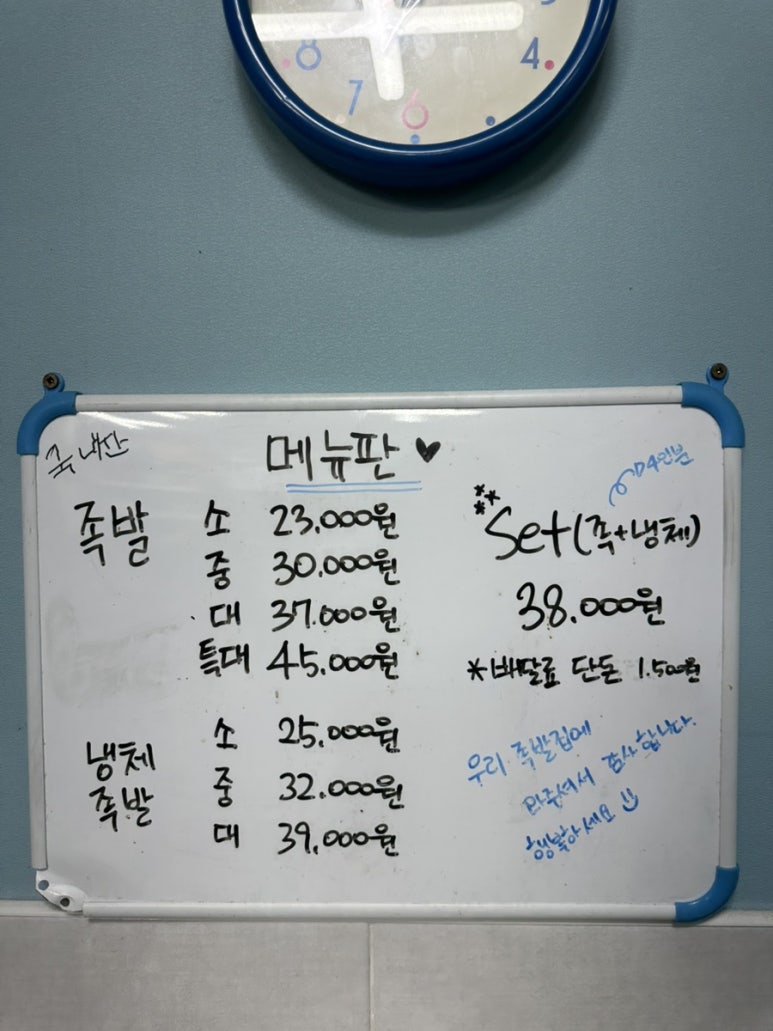 8
7
6
4
국내산
메뉴판 ♥
족발 소 23.000원
중 30.000원
대 37.000원
특대 45.000원
냉체 족발 소 25.000원
중 32.000원
대 39.000원
4인분
Set(족+냉체)
38.000원
*배달료 단돈 1.500원
우리 족발집에
와주셔서 감사합니다.
행복하세요